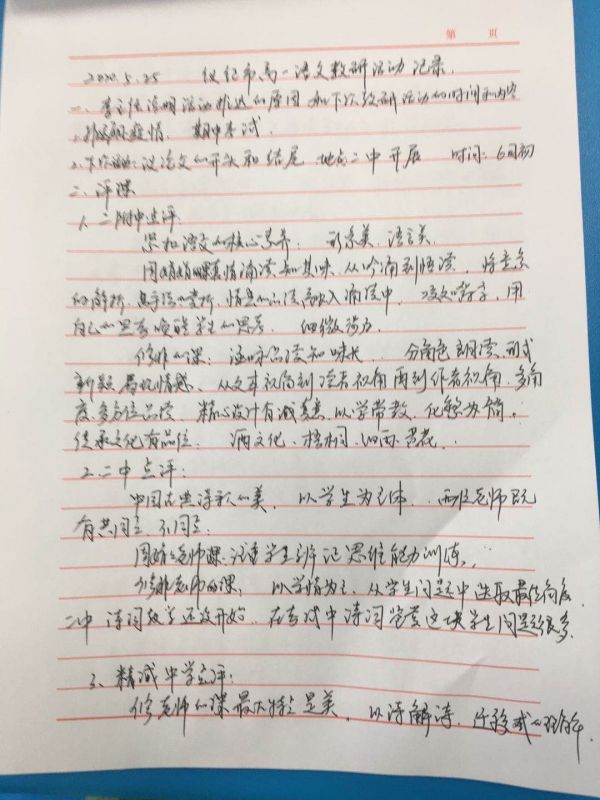 第 页
2020.5.25 仪征市高一语文教研活动记录.
一、李主任说明活动推迟的原因和下次教研活动的时间和内容
1. 疫情、期中考试.
2. 下次 议论文的开头和结尾 地点二中开展 时间:6月初
二、评课
1、二附中点评.
语文的核心素养: 形象美、语言美.
周娟娟课真情诵读知其味,从吟诵到悟读,将意象
的解析、手法的赏析、情意的品读融入诵读中. 用
自己的思考唤醒学生的思考. 细微

的课:涵咏品读知味长. 分角色朗读、形式
新颖 情感、从文本视角到读者视角再到作者视角,多角
度、多方位品读. 精心设计有诚意,以学带教、化繁为简.
传承文化有品位: 酒文化、梧桐、细雨、黄花.
2.二中点评:
中国古典诗歌的美. 以学生为主体. 两位老师既
有共同点、不同点:
周娟老师课:注重学生辨记思维能力训练.
老师的课: 以学情为主、从学生问题中选取最佳角度.
二中 诗词教学还没开始.在考试中诗词鉴赏这块学生问题很多.
3、精诚中学点评:
修老师的课最大特点是美. 以诗解诗,